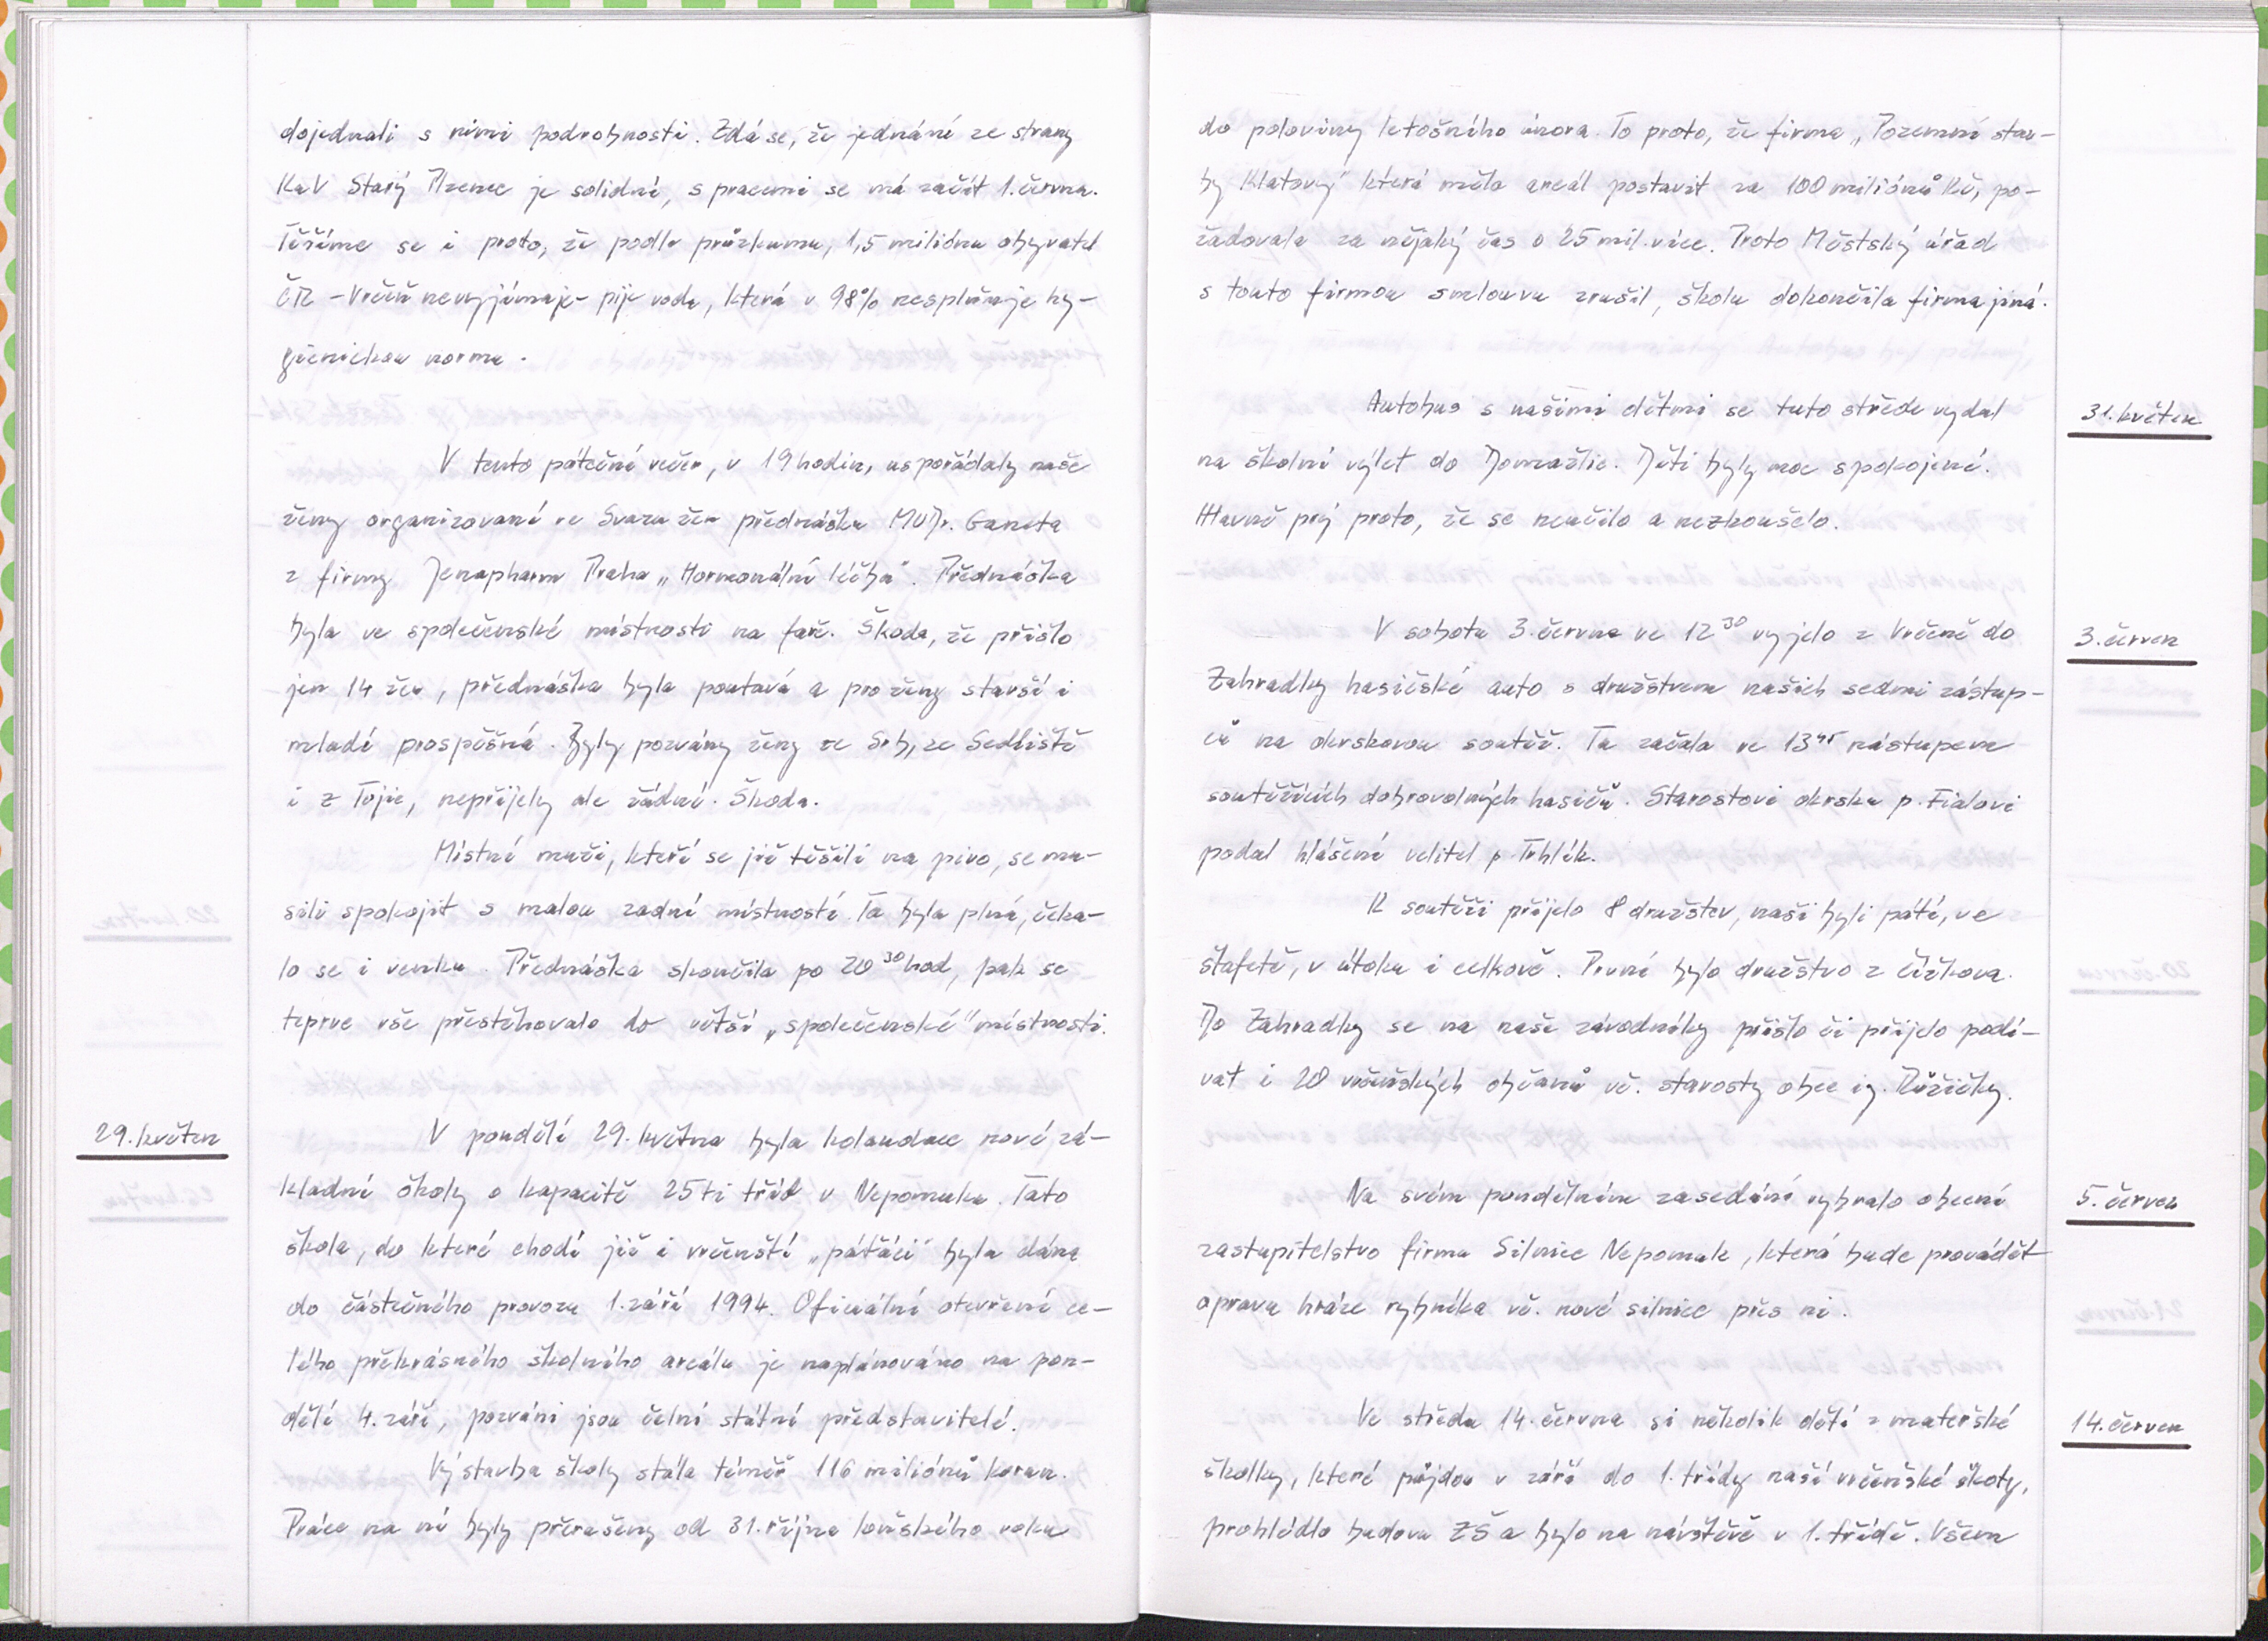 dojednali s nimi podrobnosti. Zdá se, že jednání ze strany
KaV Starý Plzenec je solidní, s pracemi se má začít 1. června.
Těšíme se i proto, že podle průzkumu, 1,5 miliónu obyvatel
ČR - Vrčeň nevyjímaje - pije vodu, která v 98% nesplňuje hy-
gienickou normu.
V tento páteční večer, v 19 hodin, uspořádaly naše
ženy organizované ve Svazu žen přednášku MUDr. Ganeta
z firmy Jenapharm Praha „Hormonální léčba“. Přednáška
byla ve společenské místnosti na faře. Škoda, že přišlo
jen 14 žen, přednáška byla poutavá a pro ženy starší i
mladé prospěšná. Byly pozvány ženy ze Srb, ze Sedliště
i z Tojic, nepřijely ale žádné. Škoda.
Místní muži, kteří se již těšili na pivo, se mu-
sili spokojit s malou zadní místností. Ta byla plná, čeka-
lo se i venku. Přednáška skončila po 20 30 hod, pak se
teprve vše přestěhovalo do větší „společenské“ místnosti.
29. květen
V pondělí 29. května byla kolaudace nové zá-
kladní školy o kapacitě 25ti tříd v Nepomuku. Tato
škola, do které chodí již i vrčenští „páťáci“ byla dána
do částečného provozu 1. září 1994. Oficiální otevření ce-
lého překrásného školního areálu je naplánováno na pon-
dělí 4. září, pozváni jsou čelní státní představitelé.
Výstavba školy stála téměř 116 miliónů korun.
Práce na ní byly přerušeny od 31. října loňského roku
do poloviny letošního února. To proto, že firma „Pozemní stav-
by Klatovy“ která měla areál postavit za 100 miliónů Kč, po-
žadovala za nějaký čas o 25 mil. více. Proto Městský úřad
s touto firmou smlouvu zrušil, školu dokončila firma jiná.
31. květen
Autobus s našimi dětmi se tuto středu vydal
na školní výlet do Domažlic. Děti byly moc spokojené.
Hlavně prý proto, že se neučilo a nezkoušelo.
3. červen
V sobotu 3. června ve 12 30 vyjelo z Vrčeně do
Zahradky hasičské auto s družstvem našich sedmi zástup-
ců na okrskovou soutěž. Ta začala ve 13 45 nástupem
soutěžících dobrovolných hasičů. Starostovi okrsku p. Fialovi
podal hlášení velitel p. Trhlík.
K soutěži přijelo 8 družstev, naši byli pátí, ve
štafetě, v útoku i celkově. První bylo družstvo z Čížkova.
Do Zahradky se na naše závodníky přišlo či přijelo podí-
vat i 20 vrčeňských občanů vč. starosty obce ig. Růžičky.
5. červen
Na svém pondělním zasedání vybralo obecní
zastupitelstvo firmu Silnice Nepomuk, která bude provádět
opravu hráze rybníka vč. nové silnice přes ni.
14. červen
Ve středu 14. června si několik dětí z mateřské
školky, které půjdou v září do 1. třídy naší vrčeňské školy,
prohlédlo budovu ZŠ a bylo na návštěvě v 1. třídě. Všem